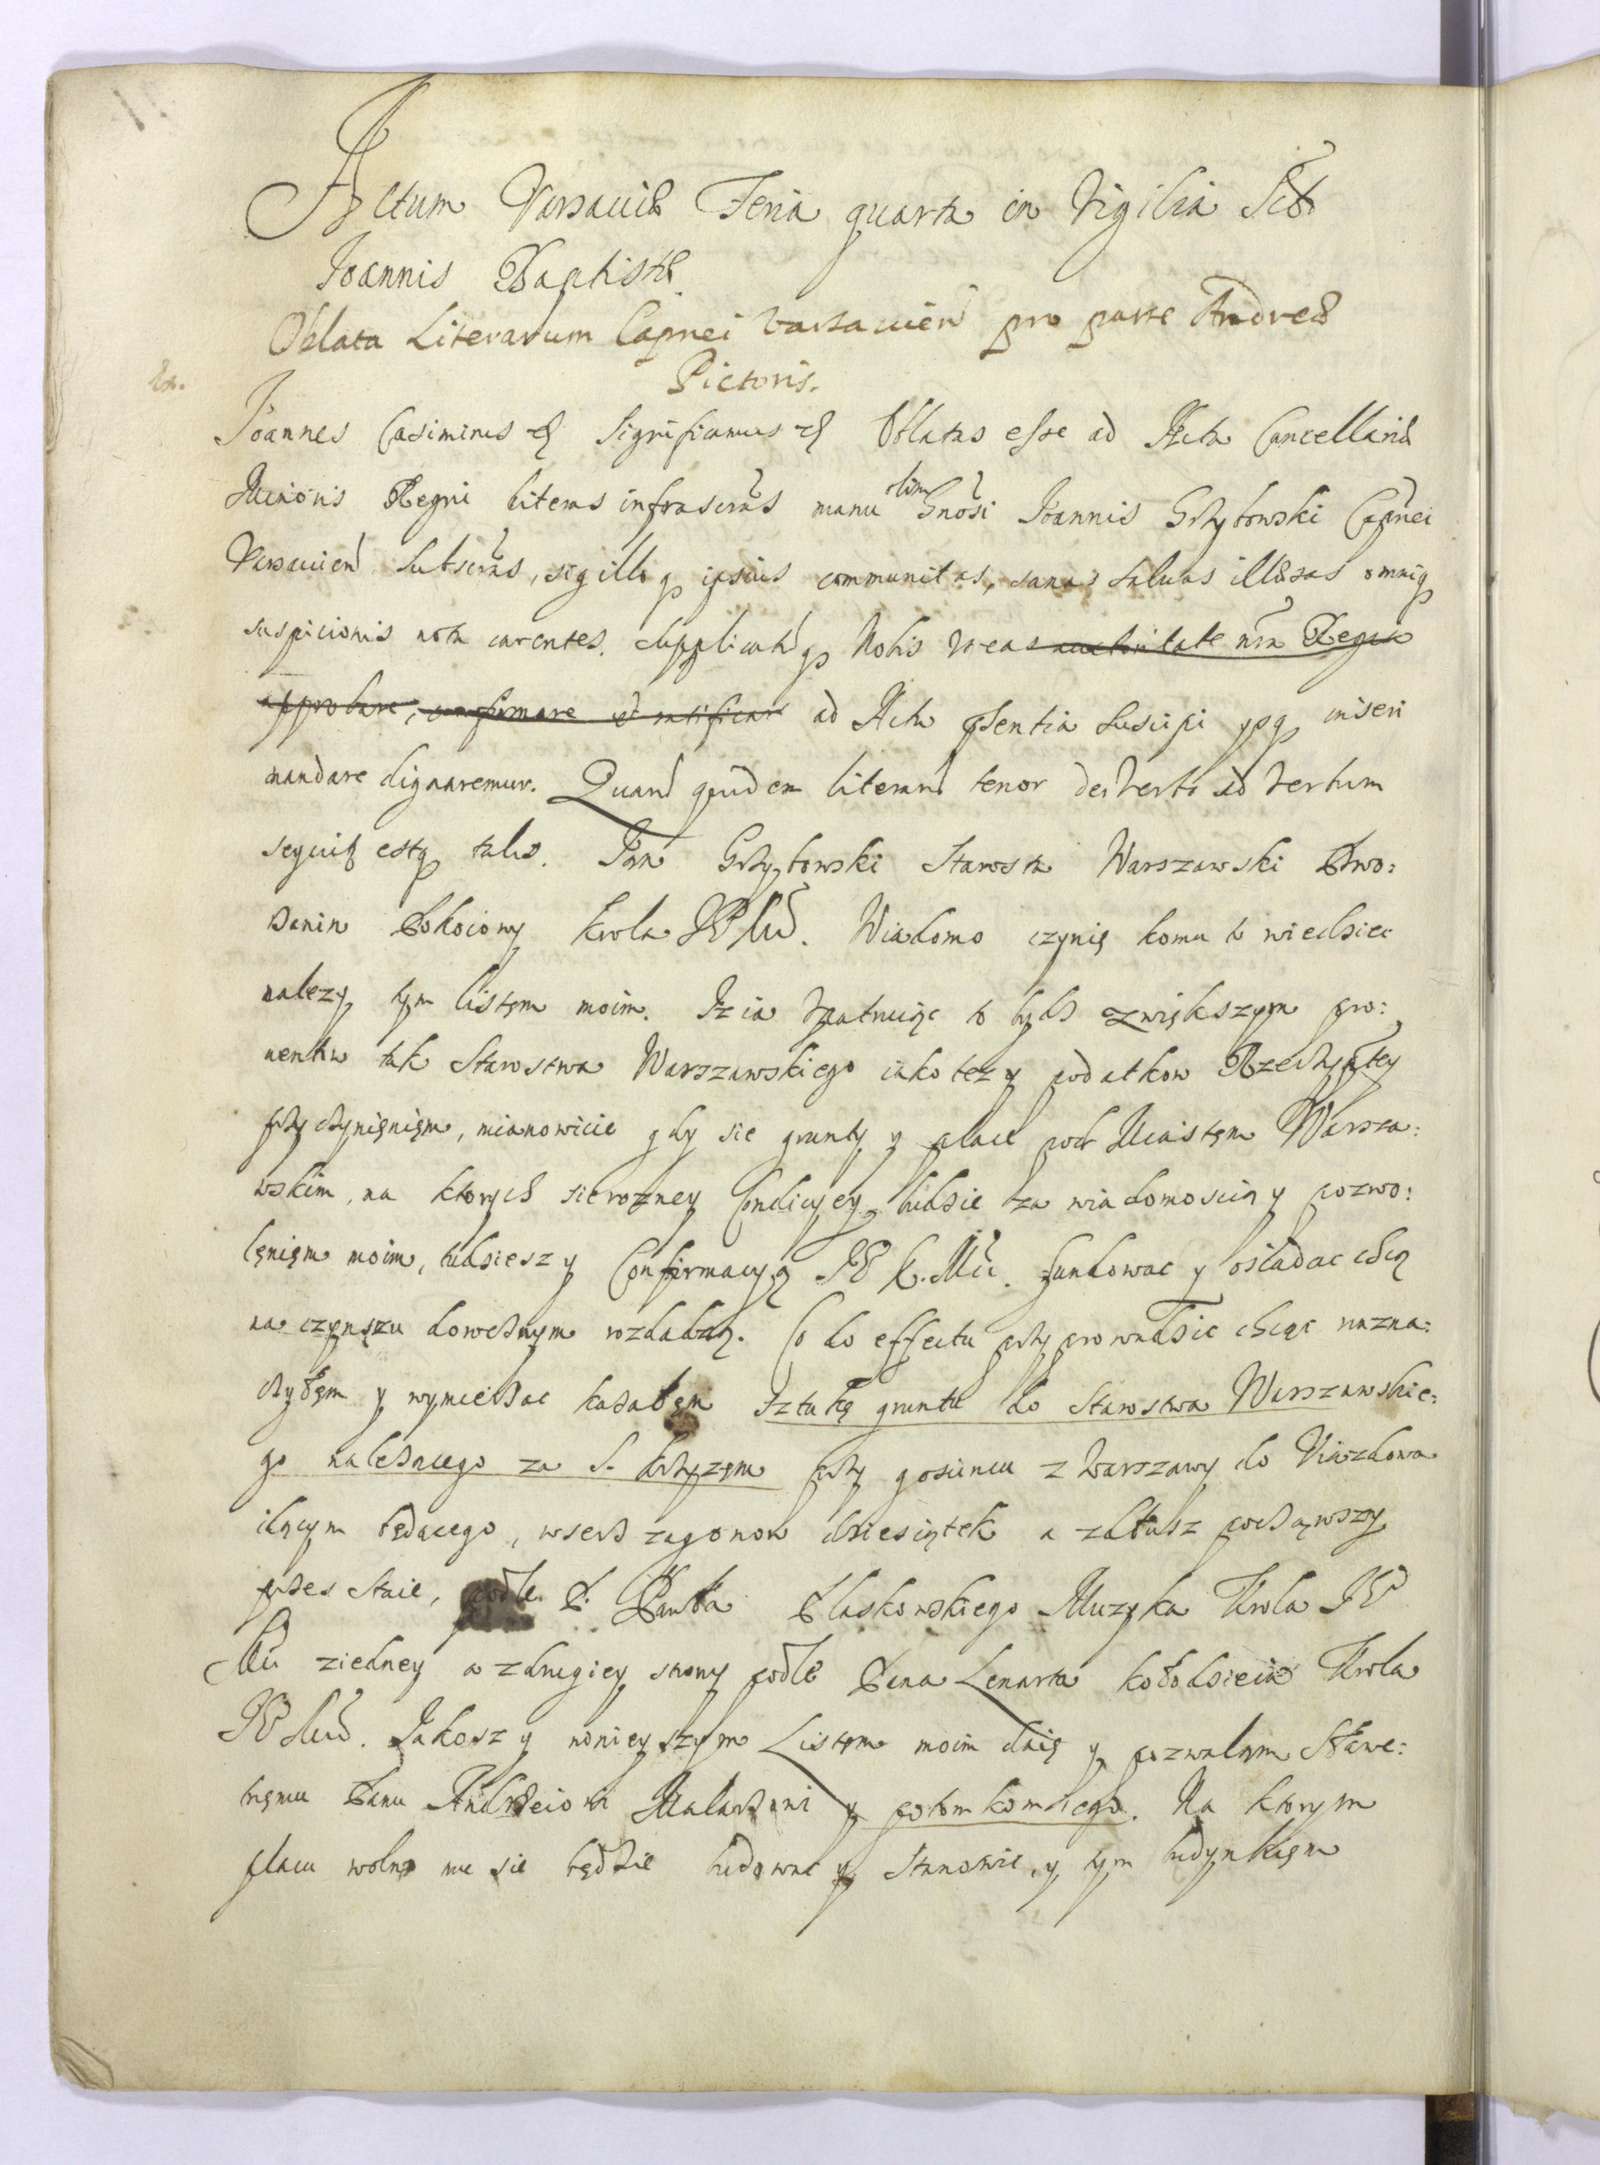 Actum Varsaviæ Feria quarta in Vigilia Scti
Joannis Baptistæ.
Oblata Literarum Capnei Varsavien pro parte Andreæ
Pictoris.
Ex.
Joannes Casimirus etc Significamus etc Oblatas esse ad Acta Cancellariæ
Minoris Regni literas infrascras manu olim Gnosi Joannis Grzybowski Capnei
Varsavien subscras, sigilloq ipsius communitas, sanas salvas illæsas omniq
suspicionis nota carentes, supplicatuq Nobis ut eas auctoritate nra Regia
approbare, confirmare et ratificare ad Acta psentia suscipi ysq inseri
mandare dignaremur. Quaru quidem literaru tenor de verbo ad verbum
sequitr estq talis. Jan Grzybowski Starosta Warszawski Dwo:
rzanin Pokoiowy Krola JE Mci. Wiadomo czynię komu to wiedziec
nalezy tym listęm moim. Iz ia upatruiąc to bydz zwiększym pro:
uentu tak Starostwa Warszawskiego iako tez y podatkow Rzeczyptey
przyczynięnięm, mianowicie gdy sie grunty y place pod Miaistęm Warsza:
wskim, na ktorych sie rozney Condicyey ludzie za wiadomoscią y pozwo:
lęnięm moim, tudziesz y Confirmacyą JE K. Mci. fundowac y osiadac chcą
na czynszu dorocznym rozdadzą. Co do effectu przyprowadzic chcąc nazna:
czyłęm y wymierzac kazałęm sztukę gruntu do Starostwa Warszawskie:
go nalezącego za S. krzyzęm przy goscincu z Warszawy do Viazdowa
idącym będącego, wserz zagonow dziesiątek a zdłusz począwszy
przes staie, podle P. Pawła Płaskowskiego Muzyka Krola JE
Mci ziedney a zdrugiey strony podle Pana Lenarta kołodzieia Krola
JE Mci. Jakosz y ninieyszym Listęm moim daię y pozwalam Sławe:
tnęmu Panu Andrzeiowi Malarzowi y potomkom iego. Na ktorym
placu wolno mu sie będzie budowac y Stanowic, y tym budynkięm